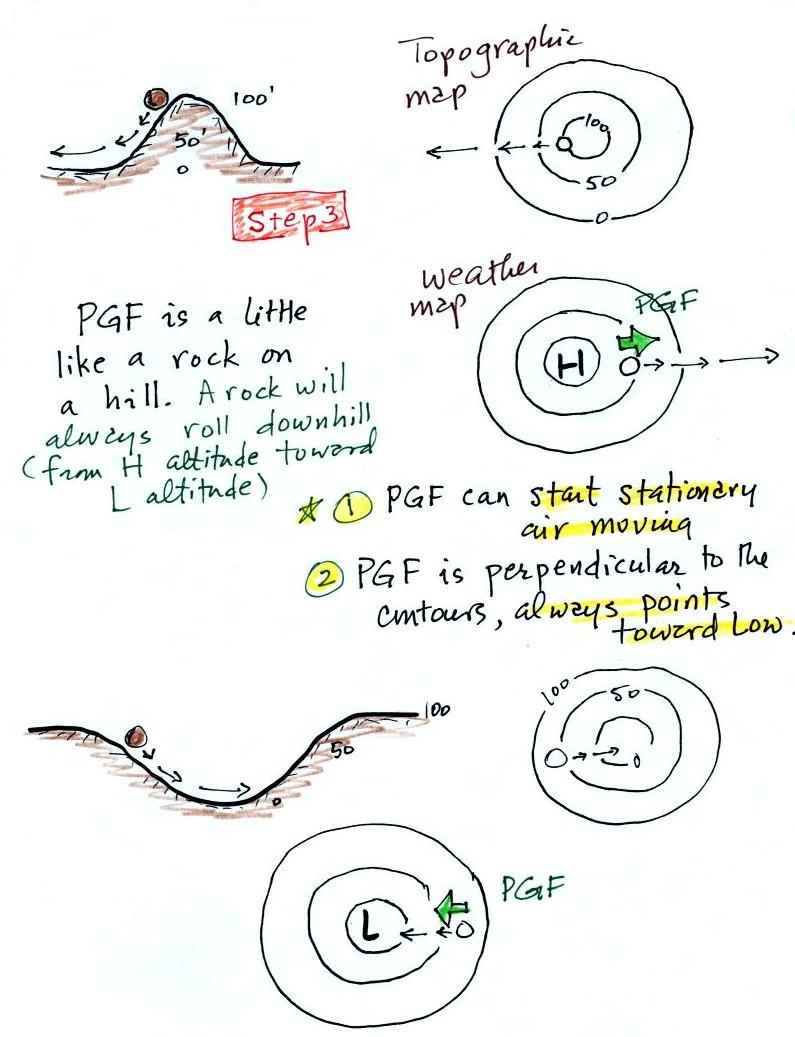 Topographic
map
100'
50'
0
100
50
0
Step 3
Weather
map
PGF
H
PGF is a little
like a rock on
a hill. A rock will
always roll downhill
(from H altitude toward
L altitude)
☆ ① PGF can start stationary
air moving
② PGF is perpendicular to the
contours, always points
toward Low.
100
50
0
100
50
0
PGF
L